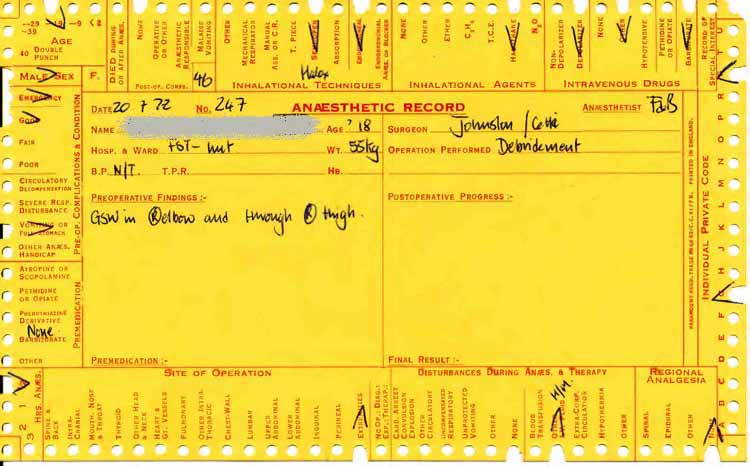 --29 -19 -9 <8
-39
AGE
40 DOUBLE PUNCH
DIED DURING OR AFTER ANÆS.
NONE
OPERATIVE OR OTHER
ANÆSTHETIC RESPONSIBLE
MALAISE VOMITING
OTHER
MECHANICAL RESPIRATOR
MANUAL ASS. OR C.R.
T. PIECE
ABSORPTION
ENDOBRONCHIAL ANÆS. OR BLOCKER
NONE
OTHER
ETHER
C3H6
T.C.E.
N2O
NON-DEPOLARIZER
DEPOLARIZER
NONE
OTHER
HYPOTENSIVE
PETHIDINE OR OPIATE
BARBITURATE
RECORD OF SPECIAL INTEREST
MALE SEX F.
POST-OP. COMPS.
46
Halox
INHALATIONAL TECHNIQUES
INHALATIONAL AGENTS
INTRAVENOUS DRUGS
DATE 20 7 72 NO. 247 ANÆSTHETIC RECORD ANÆSTHETIST F&B
NAME AGE ? 18 SURGEON Johnston /
HOSP. & WARD FST - hut WT. 55kg OPERATION PERFORMED Debridement
B.P. N/T. T.P.R. HB.
PREOPERATIVE FINDINGS:- POSTOPERATIVE PROGRESS:-
GSW in Ⓡ elbow and through Ⓡ thigh.
PREMEDICATION:- FINAL RESULT:-
EMERGENCY
GOOD
FAIR
POOR
CIRCULATORY DECOMPENSATION
SEVERE RESP. DISTURBANCE
VOMITING OR FULL STOMACH
OTHER ANÆS. HANDICAP
PRE-OP. COMPLICATIONS & CONDITION
ATROPINE OR SCOPOLAMINE
PETHIDINE OR OPIATE
PHENOTHIAZINE DERIVATIVE
None.
BARBITURATE
OTHER
PREMEDICATION
PRINTED IN ENGLAND.
INDIVIDUAL PRIVATE CODE
A B C D E F G H J K L M N O P R S T U
SITE OF OPERATION
DISTURBANCES DURING ANÆS. & THERAPY
REGIONAL ANALGESIA
HRS. ANÆS.
3 2 1
SPINE & BACK
INTRA-CRANIAL
MOUTH, NOSE & THROAT
THYROID
OTHER HEAD & NECK
HEART & GT. VESSELS
PULMONARY
OTHER INTRA-THORACIC
CHEST-WALL
LUMBAR
UPPER ABDOMINAL
LOWER ABDOMINAL
INGUINAL
PERINEAL
EXTREMITIES
CARD. ARREST
CONVULSION EXPLOSION
OTHER CIRCULATORY
UNCOMPENSATED RESPIRATORY
UNPROTECTED VOMITING
OTHER
NONE
BLOOD TRANSFUSION
H/M.
EXTRA-CORP. CIRCULATION
HYPOTHERMIA
OTHER
SPINAL
EPIDURAL
OTHER